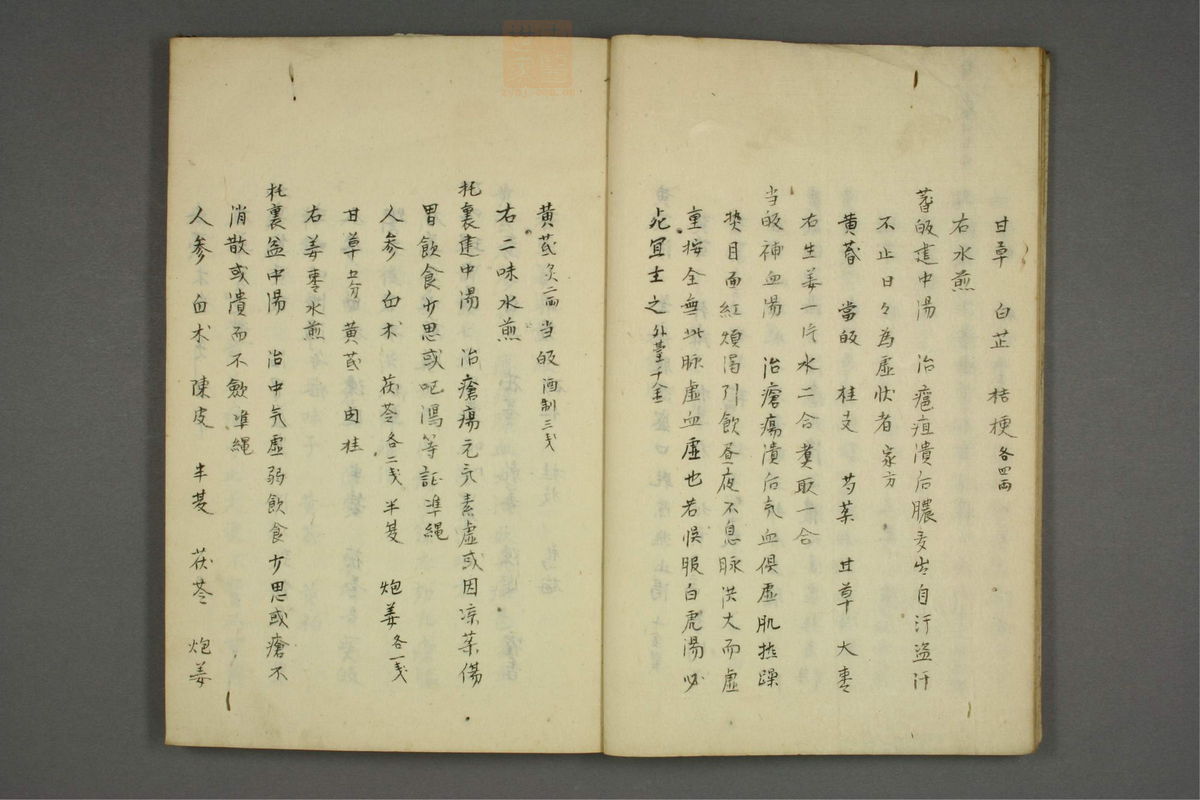 甘草 白芷 桔梗各四兩
右水煎
蓍皈建中湯 治癰疽潰后膿多出自汗盜汗
不止日々為虛忄者 家方
黄蓍 當皈 桂支 芍薬 甘草 大棗
右生姜一片水二合煑取一合
当皈補血湯 治瘡瘍潰后気血俱虛肌熱躁
目面紅煩渴引飲昼夜不息脉洪大而虛
重按全無此脉虛血虛也若悞服白虎湯必
死冝主之 外臺千金
黄芪炙一兩当皈酒制三戔
右二味水煎
托裏建中湯 治瘡瘍元気素虛或因凉薬傷
胃飲食少思或呕瀉等証準繩
人参 白朮 茯苓各二戔半夏 炮姜各一戔
甘草五分黄芪肉桂
右姜棗水煎
托裏益中湯 治中気虛弱飲食少思或瘡不
消散或潰而不斂準繩
人参 白朮 陳皮 半夏 茯苓 炮姜